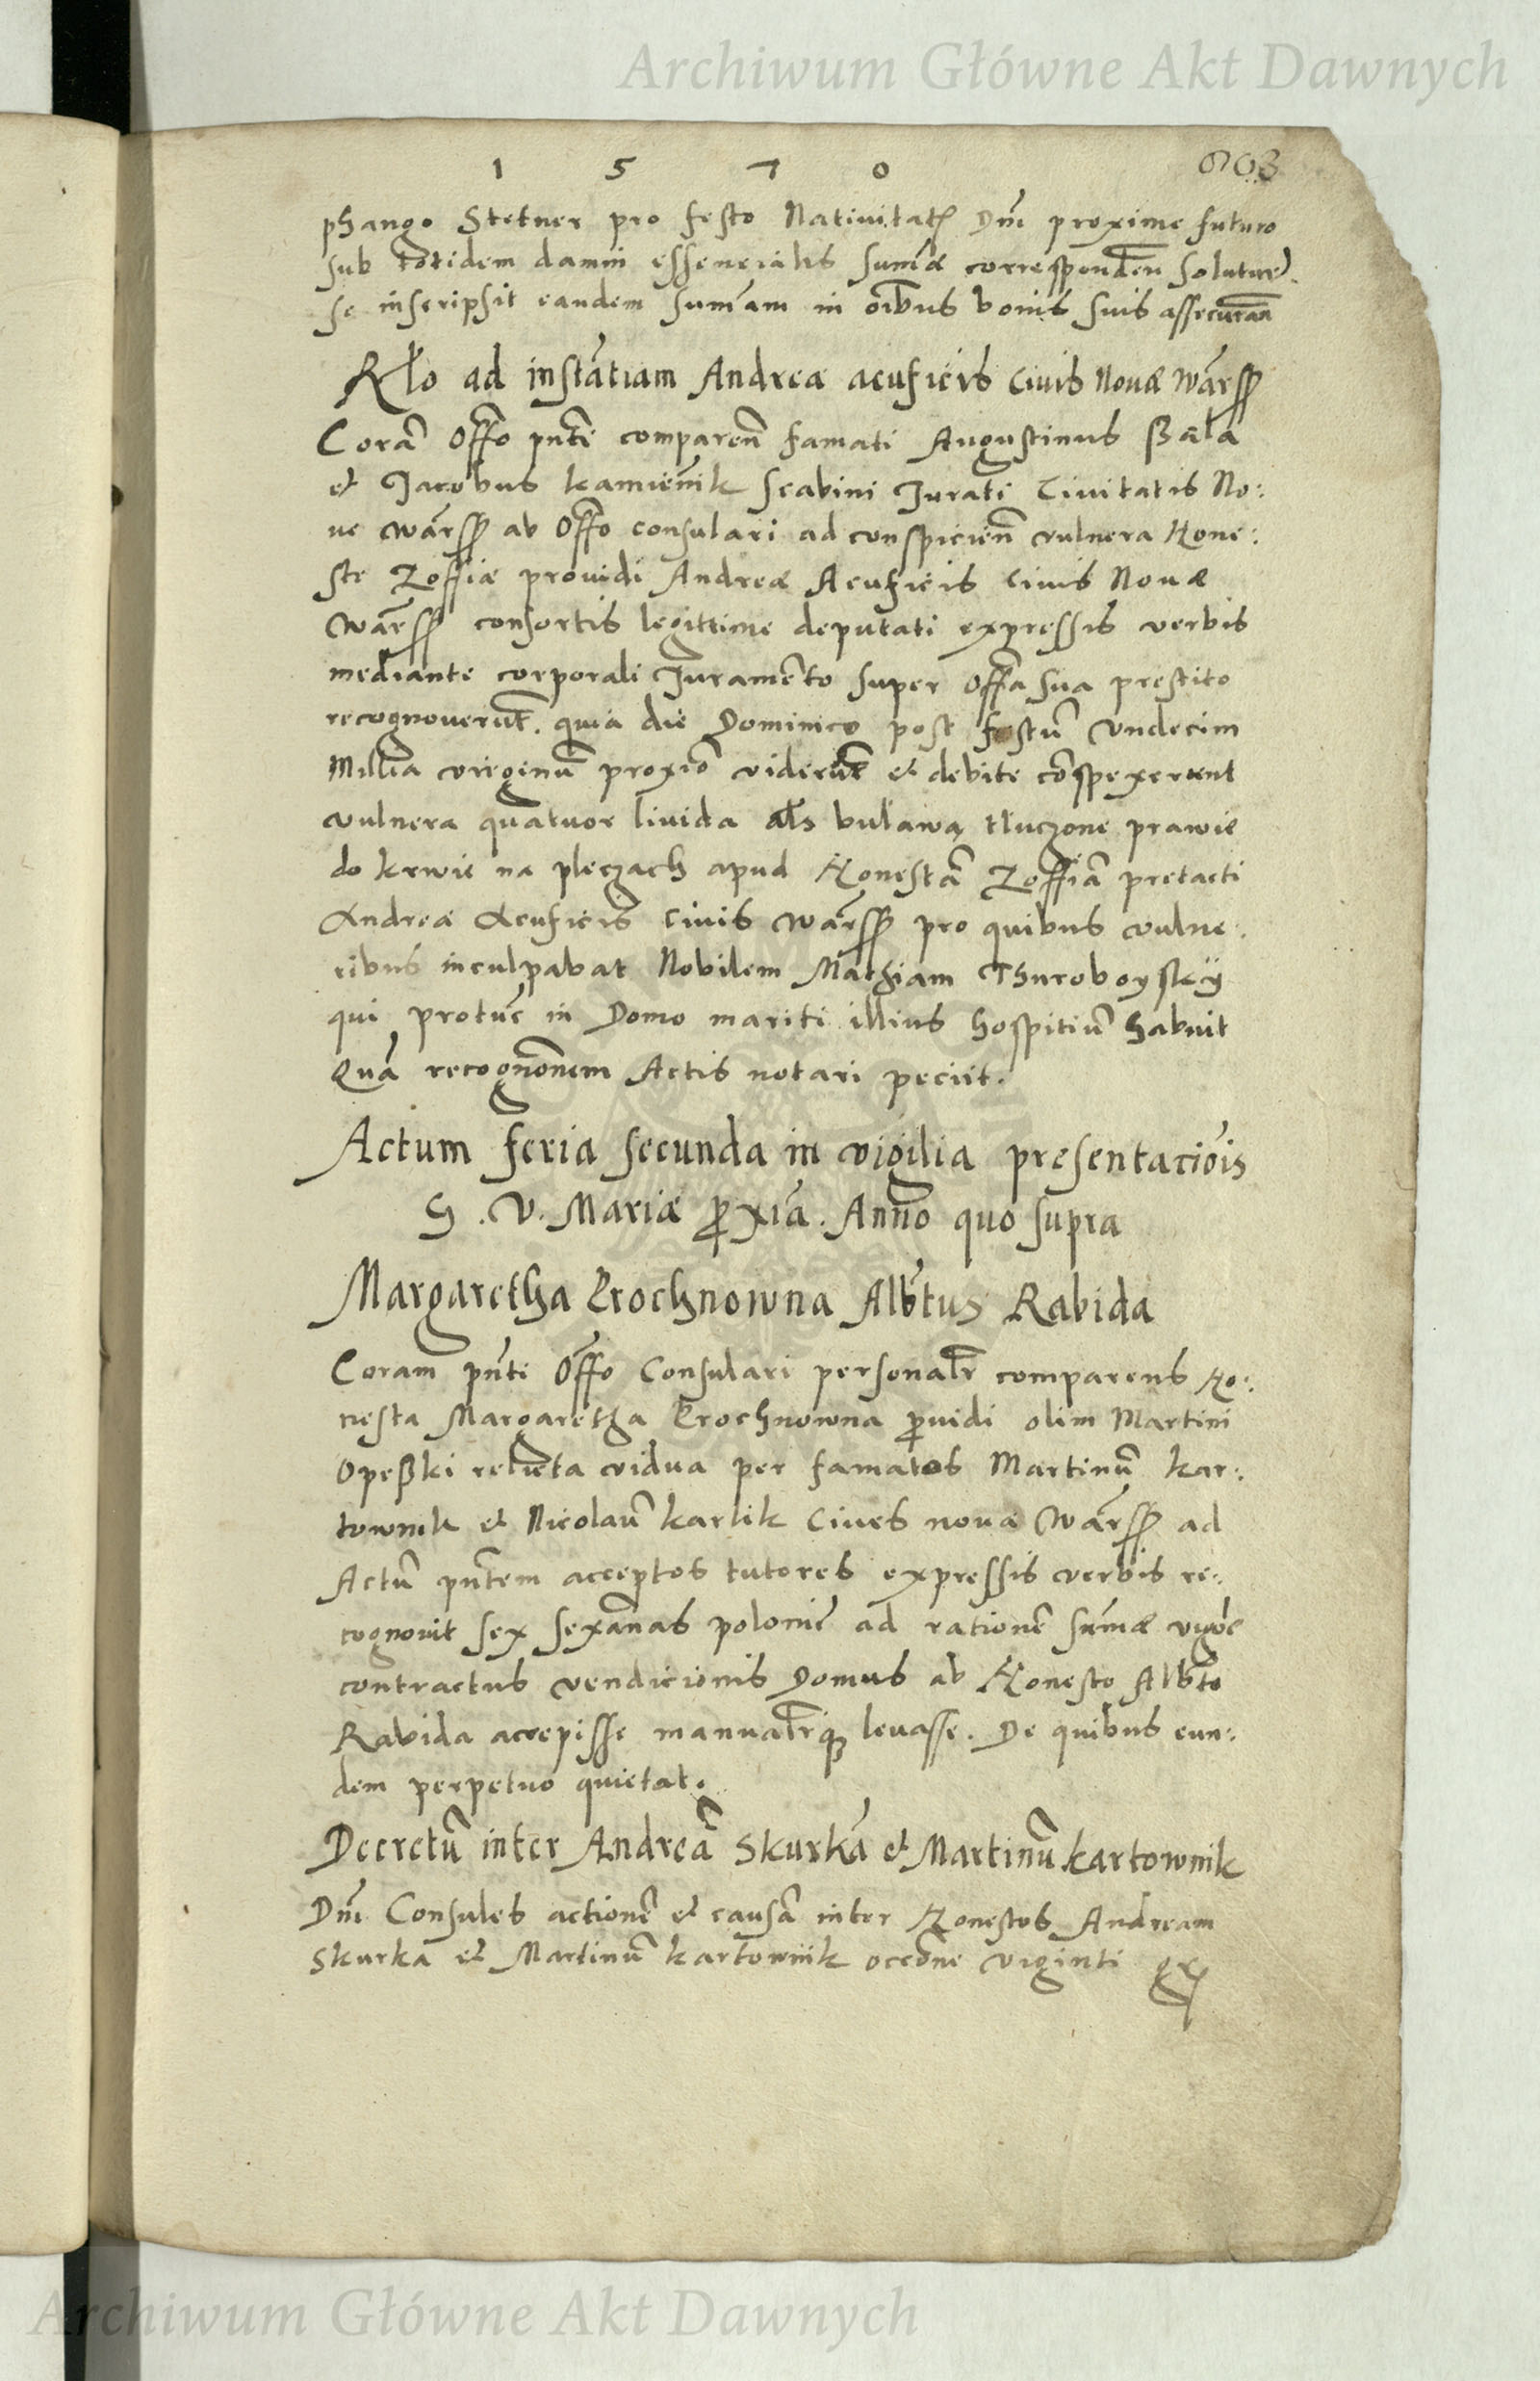 Archiwum Główne Akt Dawnych
1 5 7 0
phango Stetner pro festo Natiuitatꝭ Dnī proxime futuro
sub totidem damni essencialis sum̄æ corresponden̄ soluturꝭ
se inscripsit eandem sum̄am in oībus bonis suis assecuran̄
Rł̄o ad instātiam Andreæ acuficis Ciuis Nouæ wārsꝭ
Corā Offō pn̄ti comparen̄ famati Augustinus Bāla
et Jacobus kamiēnik scabini Jurati Ciuitatis No:
ue wārsꝭ ab Offō consulari ad conspicien̄ vulnera Hone:
ste Zoffiæ prouidi Andreæ Acuficis Ciuis Nouæ
wārsꝭ consortis legittime deputati expressis verbis
mediante corporali Juramēto super offā sua prestito
recognouerūt. quia die Dominico post festū vndecim
Millia virginū proxīo viderūt et debite cōspexerunt
vulnera quatuor liuida als buławą tłuczone prawie
do krwie na pleczach apud Honestā Zoffiā pretacti
Andreæ Acuficis Ciuis wārsꝭ pro quibus vulne:
ribus inculpabat Nobilem Mathiam Thuroboyskÿ
qui protūc in Domo mariti illius hospitiū habuit
Quā recognōnem Actis notari peciit.
Actum feria secunda in vigilia presentaciōis
S. V. Mariæ ꝓxīa. Anno quo supra
Margaretha Crochnowna Alb̄tus Rabida
Coram pn̄ti Offō Consulari personalr̄ comparens Ho:
nesta Margaretha Crochnowna ꝓuidi olim Martini
Opeßki relicta vidua per famatos Martinū kar:
townik et Nicolaū karlik Ciues nouæ wārsꝭ ad
Actū pn̄tem acceptos tutores expressis verbis re:
cognouit sex sexān̄as polonic̄ ad rationē sum̄æ vigōe
contractus vendicionis Domus ab Honesto Alb̄to
Rabida accepisse manualr̄qꝫ leuasse. De quibus eun:
dem perpetuo quietat.
Decretū inter Andreā Skurkā et Martinū kartownik
Dnī Consules actionē et causā inter Honestos Andream
Skurka et Martinū kartownik occōne viginti grꝭ
Archiwum Główne Akt Dawnych